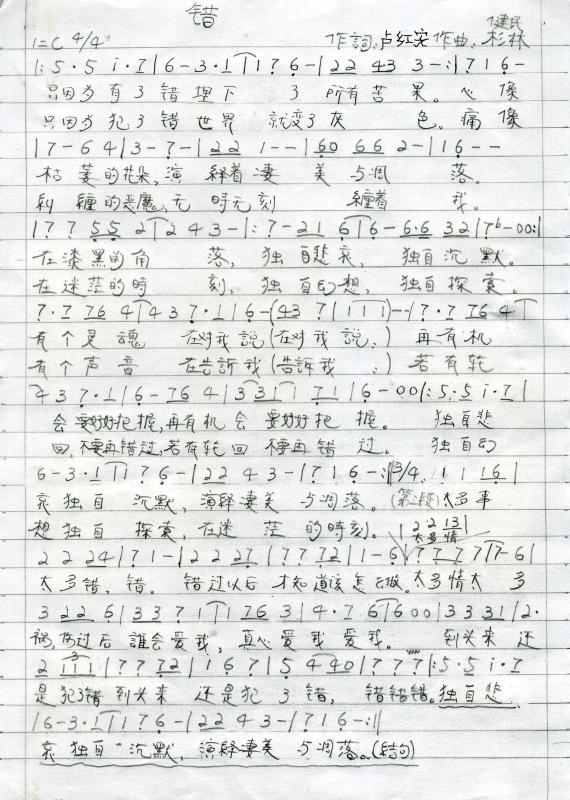 错
1=C 4/4 作詞:卢红安 作曲:健民 杉林
|: 5·5 i·7 | 6-3·1 | 1 7 6- | 22 43 3-:| 7 1 6-
只因为有了错埋下 了所有苦果。心像
只因为犯了错世界 就变了灰色。痛像
| 7-6 4 | 3-7- | 22 1-- | 60 66 2- | 16--
枯萎的花朵,演绎着凄美与凋落。
纠缠的恶魔,无时无刻 缠着我。
| 7 7 55 2 | 2 4 3- |: 7-21 6 | 6-6·6 32 | 7b-00:|
在漆黑的角落,独自悲哀,独自沉默。
在迷茫的時刻,独自幻想,独自探索。
7·7 76 4 | 4 3 7·1 | 6-(43 7 | 1 1 1)- | 7·7 76 4
有个灵魂 在对我説(在对我説:)再有机
有个声音 在告訴我(告訴我:)若有轮
4 3 7·1 | 6-76 4 | 3 31 1 71 | 6-00 |: 5·5 i·7 |
会要好好把握,再有机会要好好把握。 独自悲
回,不要再错过,若有轮回 不要再错过。 独自幻
6-3·1 | 1 7 6- | 22 4 3- | 7 1 6-:| 3/4 1 1 16 |
哀独自 沉默,演绎凄美与凋落。(第二段)太多事
想独自 探索,在迷茫的時刻。 | 2 2 13 |
太多情
2 2 24 | 7 1- | 2 2 27 | 7 7 72 | 1-6 | 7 7 7 7 | 7-6 |
太多错,错。 错过以后 才知道该怎么做。太多情太多
3 22 6 | 3 3 7 1 | 1 76 3 | 4·7 6 | 6 00 | 3 3 31 | 2·
祸,伤过后 誰会爱我,真心爱我爱我。 到头来还
2 111 | 7 7 72 | 1 6 7 | 5 4 40 | 7 7 7 |: 5·5 i·7
是犯了错 到头来 还是犯了错, 错错错。独自悲
| 6-3·1 | 1 7 6- | 22 4 3- | 7 1 6-:||
哀独自 沉默,演绎凄美与凋落。(结句)